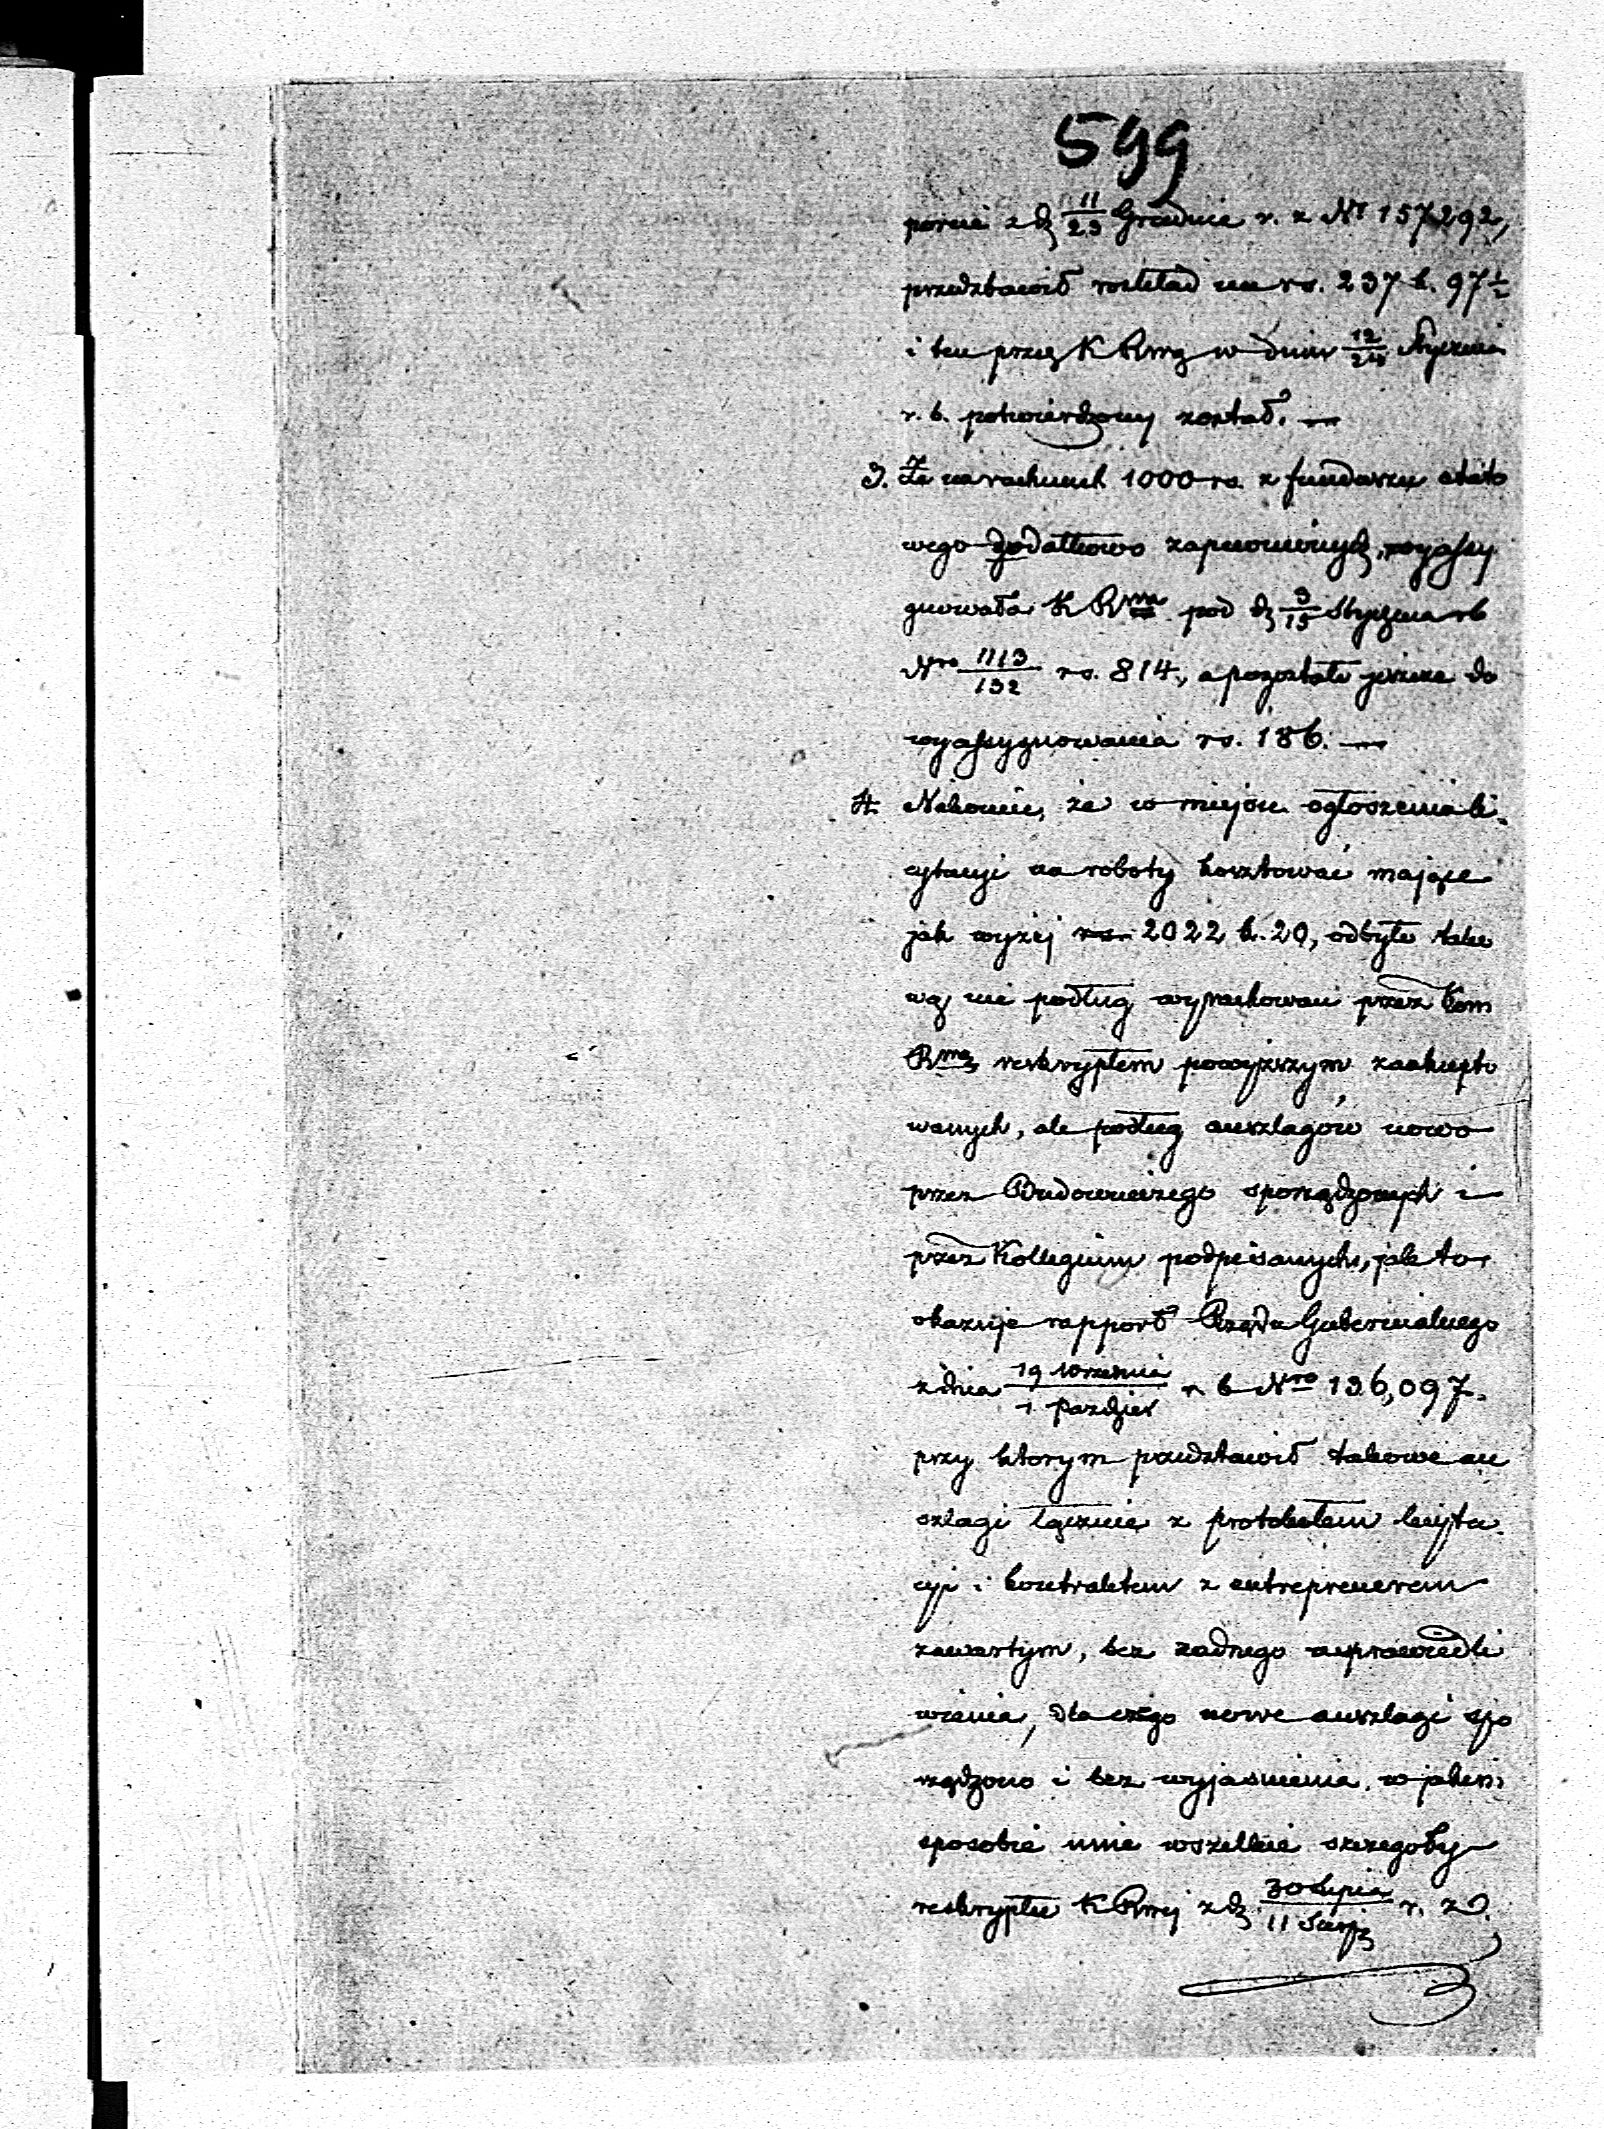 599
porcie z d 11/23 Grudnia r. z. Nr 157292,
przedstawił rozkład na rs. 237 k. 97½
i ten przez K Rzą w dniu 12/24 Stycznia
r. b. potwierdzony został. —
3. Że na rachunek 1000 rs. z funduszu etato
wego dodatkowo zapewnionych, wyassy
gnowała K Rma pod d 3/15 Stycznia rb
Nro 1113/132 rs. 814., a pozostało jeszcze do
wyassygnowania rs. 186. —
4. Nakoniec, że w miejsce ogłoszenia li
cytacyi na roboty kosztować mające
jak wyżej rs. 2022 k. 20, odbyto tako
wą nie podług wyrachowań przez Kom
Rmą reskryptem powyższym zaakcepto
wanych, ale podług anszlagów nowo
przez Budowniczego sporządzonych i
przez Kollegium podpisanych, jak to
okazuje rapport Rządu Gubernialnego
z dnia 19 Września/1 Paździer r b Nro 136,097.
przy którym przedstawił takowe an
szlagi łącznie z protokołem licyta
cyi i kontraktem z entreprenerem
zawartym, bez żadnego usprawiedli
wienia, dla czego nowe anszlagi spo
rządzono i bez wyjaśnienia, w jakim
sposobie inne wszelkie szczegóły
reskryptu K Rmej z d 30 Lipca/11 Sierp r. z.